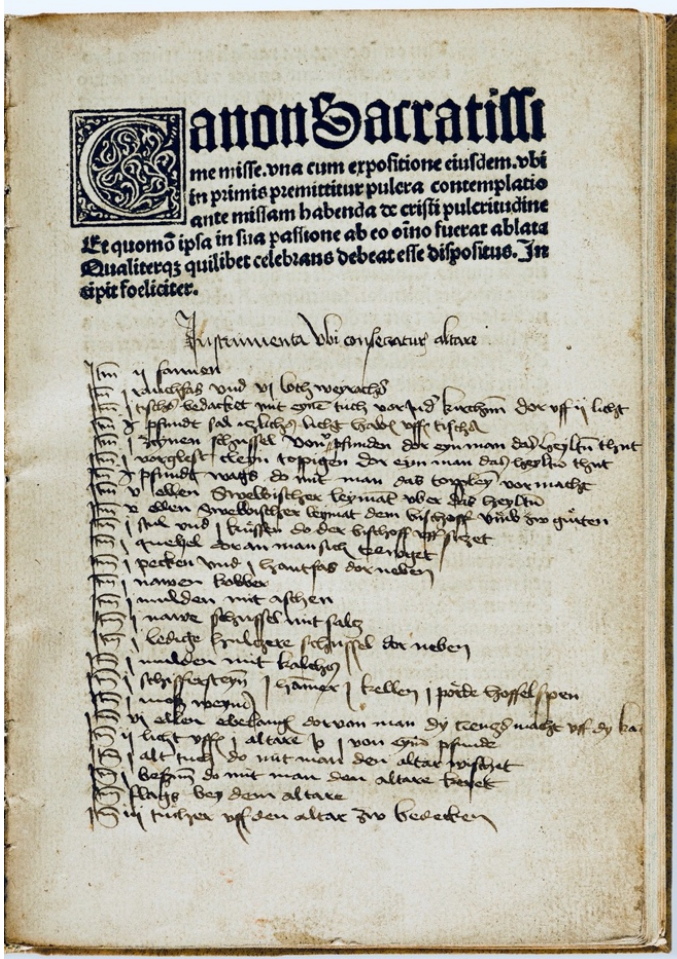 Canon Sacratissi
me misse. vna cum expositione eiusdem. vbi
in primis premittitur pulcra contemplatio
ante missam habenda de cristi pulcritudine
Et quomō ipsa in sua passione ab eo oīno fuerat ablata
Qualiterqꝫ quilibet celebrans debeat esse dispositus. In
cipit foeliciter.
Instrumenta vbi consecratur altare
Itm̄ ij fannen
Itm̄ j rauchfas vnd vj loth weyrachs
Itm̄ j tischs bedacket mit eynē tuch vor der kirchen dor vff ij licht
Itm̄ pfundt licht vff tischs
Itm̄ j schussel pfunden dor eyn man das heyltū thut
Itm̄ j vorglest cleyn dor eyn man das heyltū thut
Itm̄ pfundt wags do mit man das vormacht
Itm̄ v ellen Swebischer leymat vber das heyltū
Itm̄ v ellen Swebischer leymat dem bischoff vmb zw gurten
Itm̄ j stul vnd j kussen do der bischoff vff siczet
Itm̄ j quehel doran man sich
Itm̄ j pecken vnd j hantfas dor neben
Itm̄ j nawen kobber
Itm̄ j mulden mit aschen
Itm̄ j nawe schussel mit salcz
Itm̄ j ledige hulczere schussel dor neben
Itm̄ j mulden mit kalchs
Itm̄ j schiffersteyn j hamer j kellen j hoffelspen
Itm̄ j mos weyns
Itm̄ vj ellen dorvan man dy macht vff dy
Itm̄ ij licht vff j altare j von eynē pfunde
Itm̄ j alt tuch do mit man den altar wischet
Itm̄ j besem do mit man den altare keret
Itm̄ flachs bey dem altare
Itm̄ iij tucher vff den altar zw bedecken